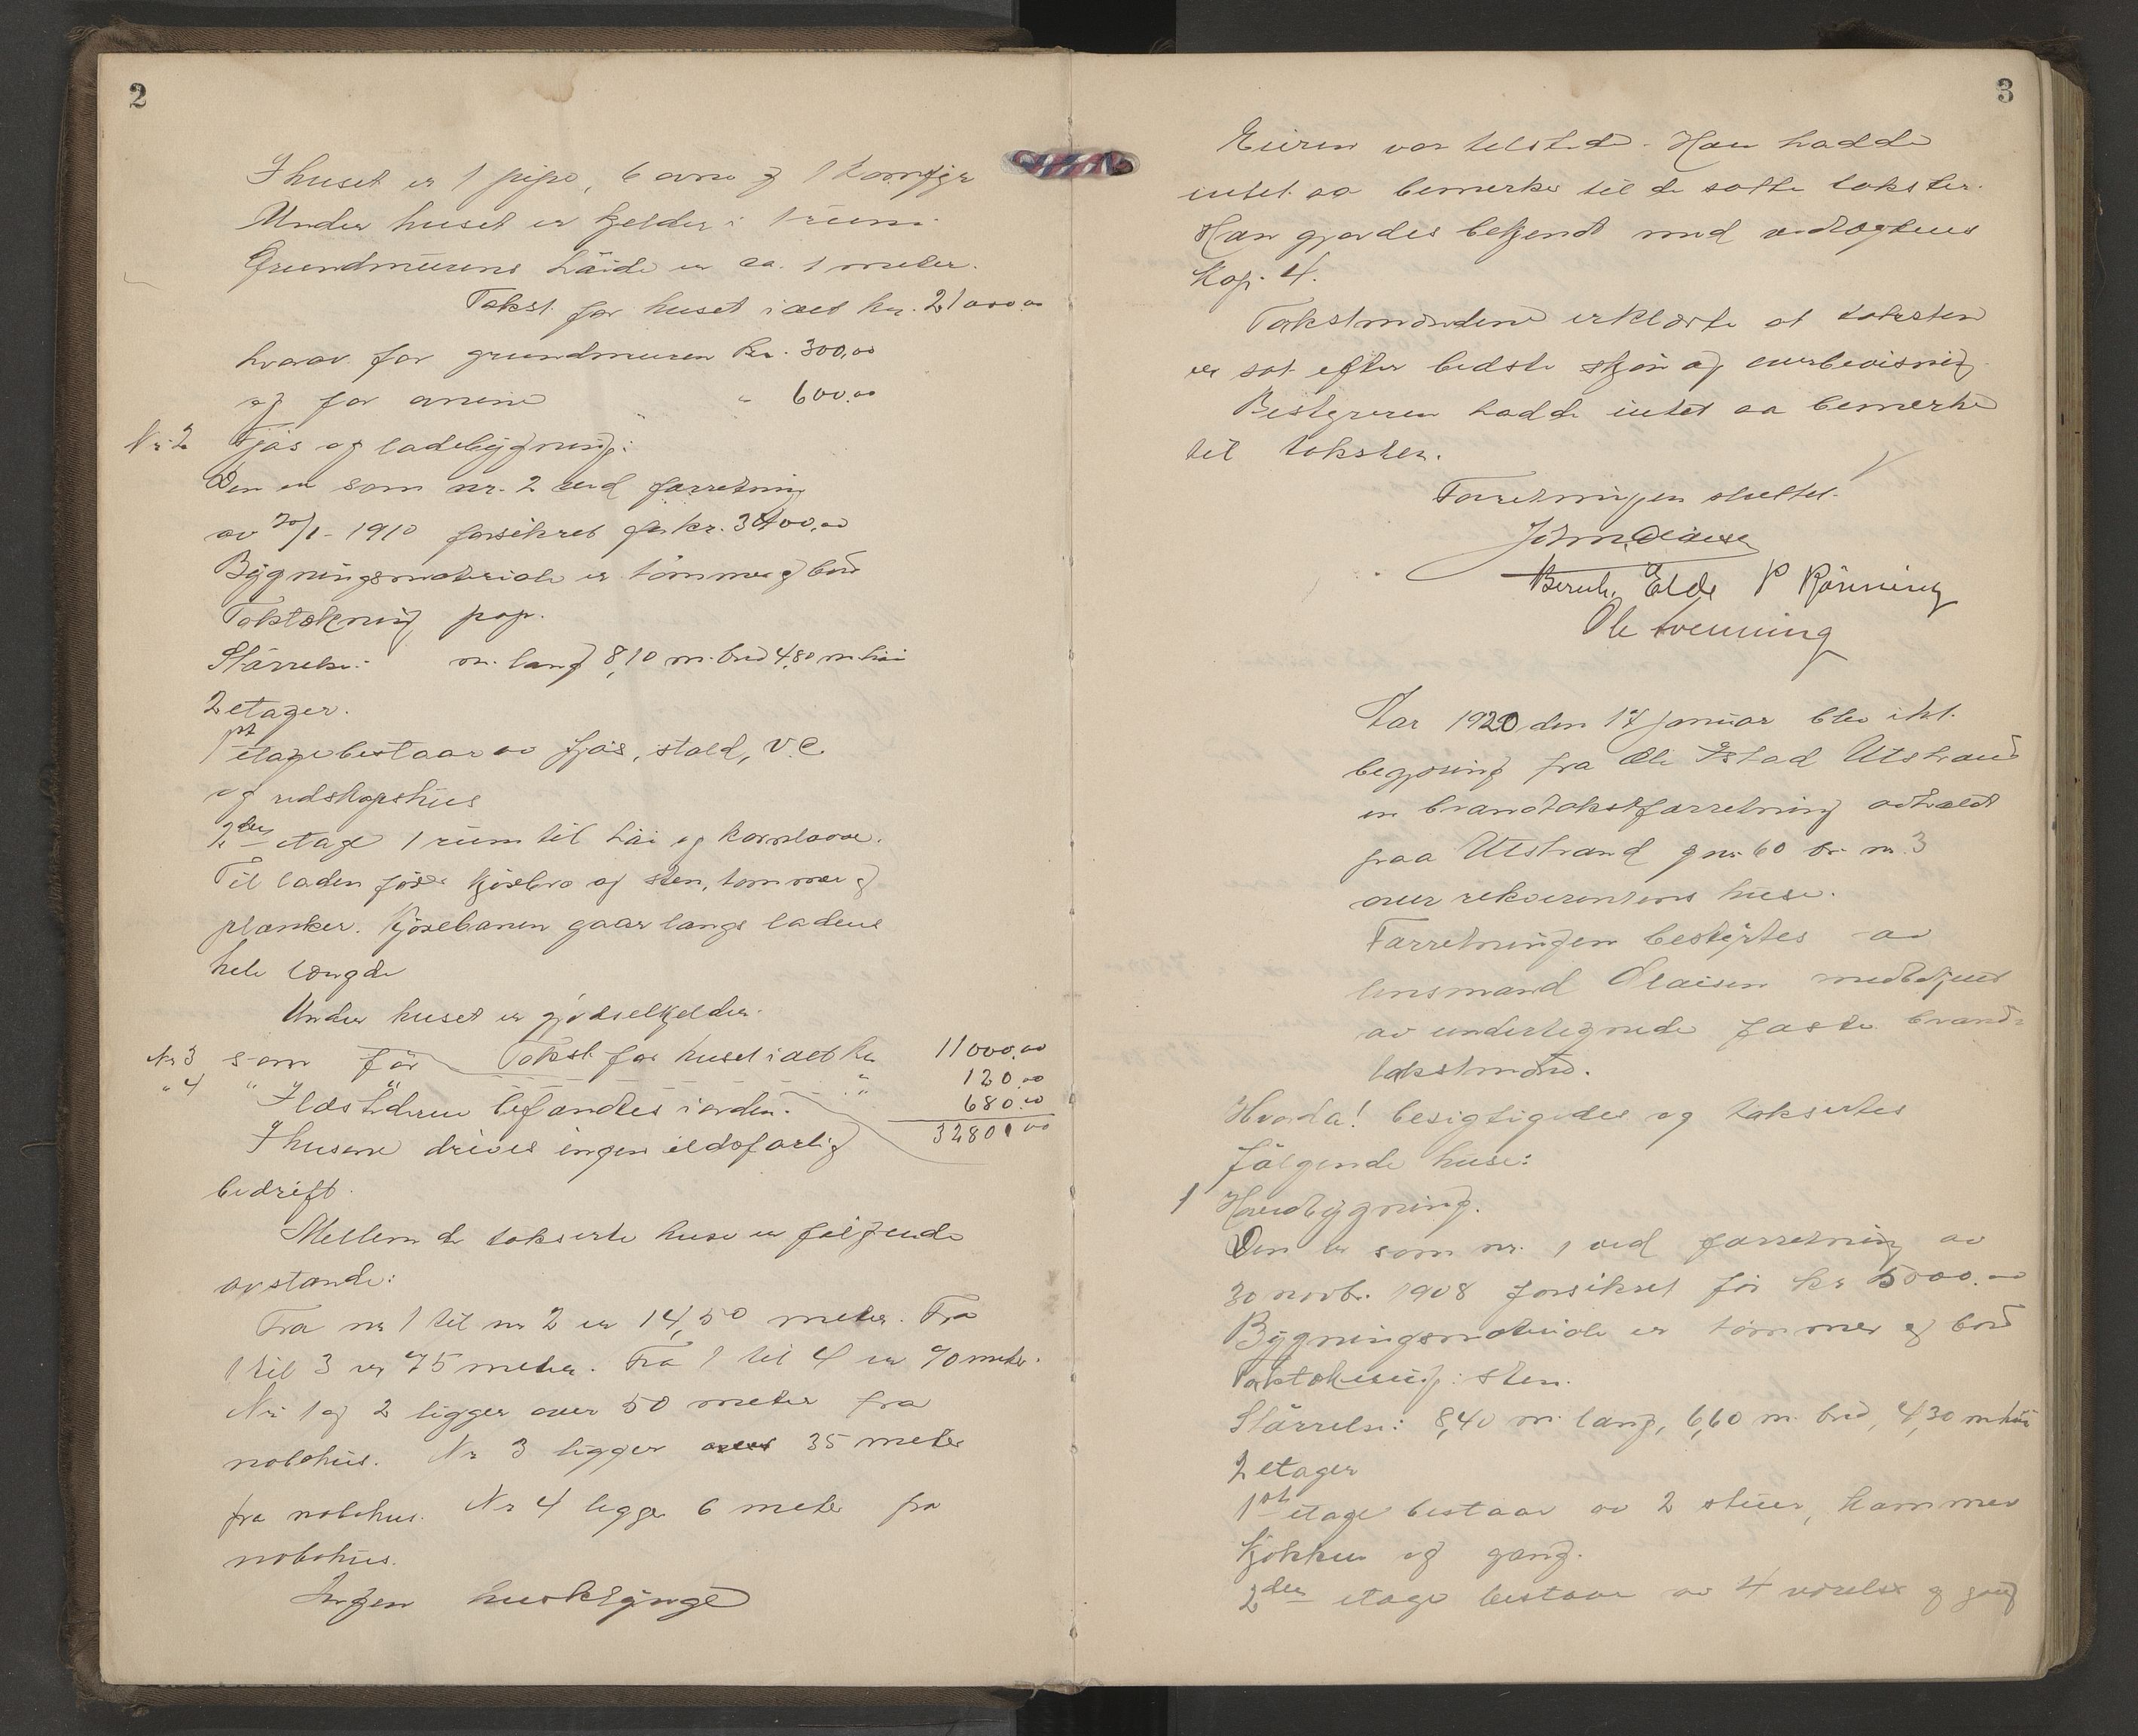 2
I huset er 1 pipe, 6 ovne og 1 komfyr
Under huset er kjelder i 1 rum.
Grundmurens höide er ca. 1 meter.
Takst for huset i alt kr. 21000.00
hvorav for grundmuren kr. 300,00
og for ovnene " 600.00
Nr. 2 Fjös og ladebygning:
Den er som nr. 2 ved forretning
av 20/1 - 1910 forsikret for kr. 3400.00
Bygningsmateriale er tömmer og bord
Taktækning pap.
Störrelse: m. lang 8,10 m. bred 4,80 m. höi
2 etager.
1ste etage bestaar av fjös, stald, v.c.
og redskapshus
2den etage 1 rum til höi og kornlaave.
Til laden förer kjörebro af sten, tommer og
planker. Kjörebanen gaar langs ladens
hele længde
Under huset er gjödselkjelder.
Takst for huset i alt kr 11000.00
Nr 3 som för " 120.00
" 4 " " " 680.00
32800.00
Ildstederne befandtes i orden.
I husene drives ingen ildsfarlig
bedrift.
Mellem de takserte huse er følgende
avstande:
Fra nr 1 til nr 2 er 14,50 meter. Fra
1 til 3 er 75 meter. Fra 1 til 4 er 70 meter.
Nr. 1 og 2 ligger over 50 meter fra
nabohus. Nr 3 ligger over 35 meter
fra nabohus. Nr 4 ligger 6 meter fra
nabohus.
Ingen husklynge
3
Eieren var tilstede. Han hadde
intet aa bemerke til de satte takster.
Han gjordes bekjendt med vedtægtens
Kap. 4.
Takstmændene erklærte at taksten
er sat efter bedste skjön og overbevisning.
Bestyreren hadde intet aa bemerke
til taksten.
Forretningen sluttet.
John Olaisen
Bernh. Elde P Rönning
Ole Svenning
Aar 1920 den 17 januar blev iföl.
begjæring fra Ole Ystad Utstrand
en brandtakstforretning avholdt
paa Utstrand g nr. 60 br. nr. 3
over rekvirentens huse.
Forretningen bestyrtes av
lensmand Olaisen medbetjent
av undertegnede faste brand-
takstmænd.
Hvorda! besigtigedes og taksertes
fölgende huse:
1 Hovedbygning.
Den er som nr. 1 ved forretning av
30 novbr. 1908 forsikret for kr 5000.00
Bygningsmateriale er tömmer og bord
Taktækning: sten.
Störrelse: 8,40 m. lang, 6,60 m. bred, 4,30 m. höi
2 etager
1ste etage bestaar av 2 stuer, kammer
kjökken og gang.
2den etage bestaar av 4 værelser og gang